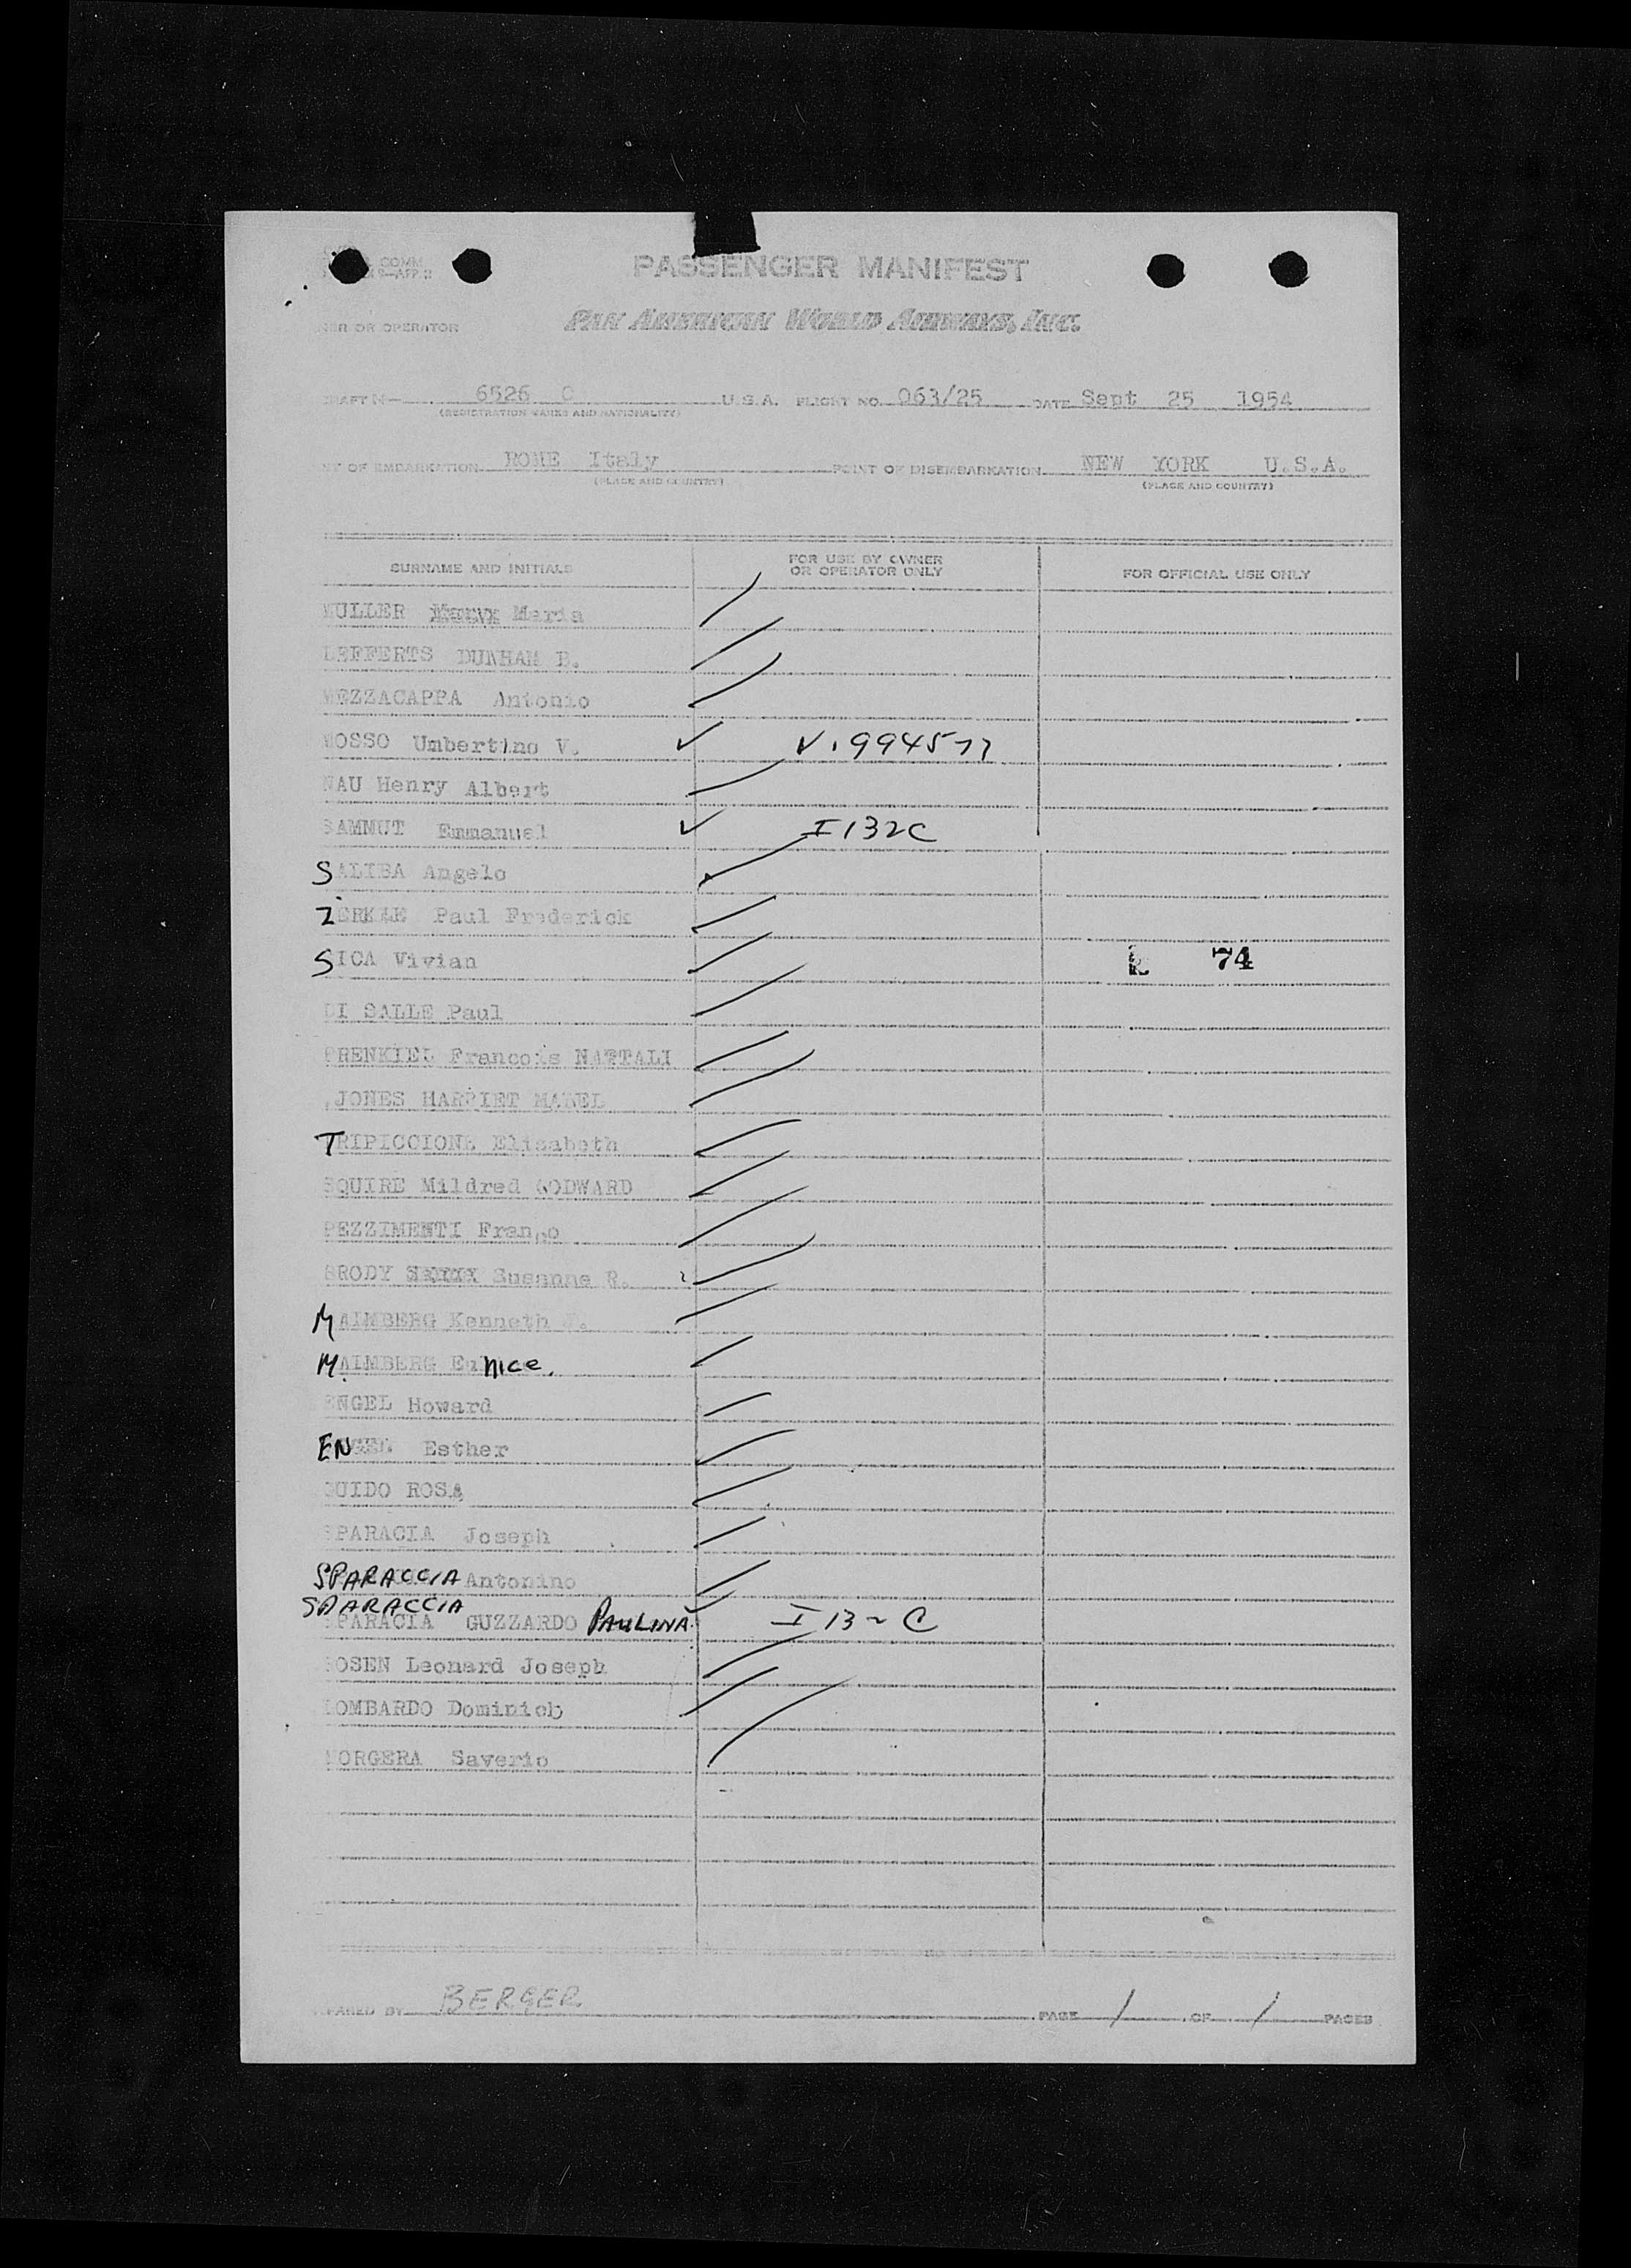 COMM
PASSENGER MANIFEST
OR OPERATOR PAN AMERICAN WORLD AIRWAYS, INC.
6526 C U.S.A. FLIGHT NO. 063/25 DATE Sept 25 1954
(REGISTRATION MARKS AND NATIONALITY)
OF EMBARKATION ROME Italy POINT OF DISEMBARKATION NEW YORK U.S.A.
(PLACE AND COUNTRY) (PLACE AND COUNTRY)
SURNAME AND INITIALS FOR USE BY OWNER OR OPERATOR ONLY FOR OFFICIAL USE ONLY
MULLER Maria
LEFFERTS DUNHAM B.
MEZZACAPPA Antonio
MOSSO Umbertino V. ✓ V.994577
NAU Henry Albert
SAMMUT Emmanuel ✓ I132C
SALIBA Angelo
ZERKLE Paul Frederick
SICA Vivian 74
DI SALLE Paul
FRENKIEL Francois NAFTALI
JONES HARRIET
TRIPICCIONE Elisabeth
SQUIRE Mildred GODWARD
PEZZIMENTI Franco
BRODY Susanne R.
MALMBERG Kenneth
MALMBERG Eunice.
ENGEL Howard
ENGEL Esther
GUIDO ROSA
SPARACIA Joseph
SPARACCIA Antonino
SPARACCIA
SPARACIA GUZZARDO PAULINA I 132C
ROSEN Leonard Joseph
LOMBARDO Dominick
MORGERA Saverio
PREPARED BY BERGER PAGE 1 OF 1 PAGES